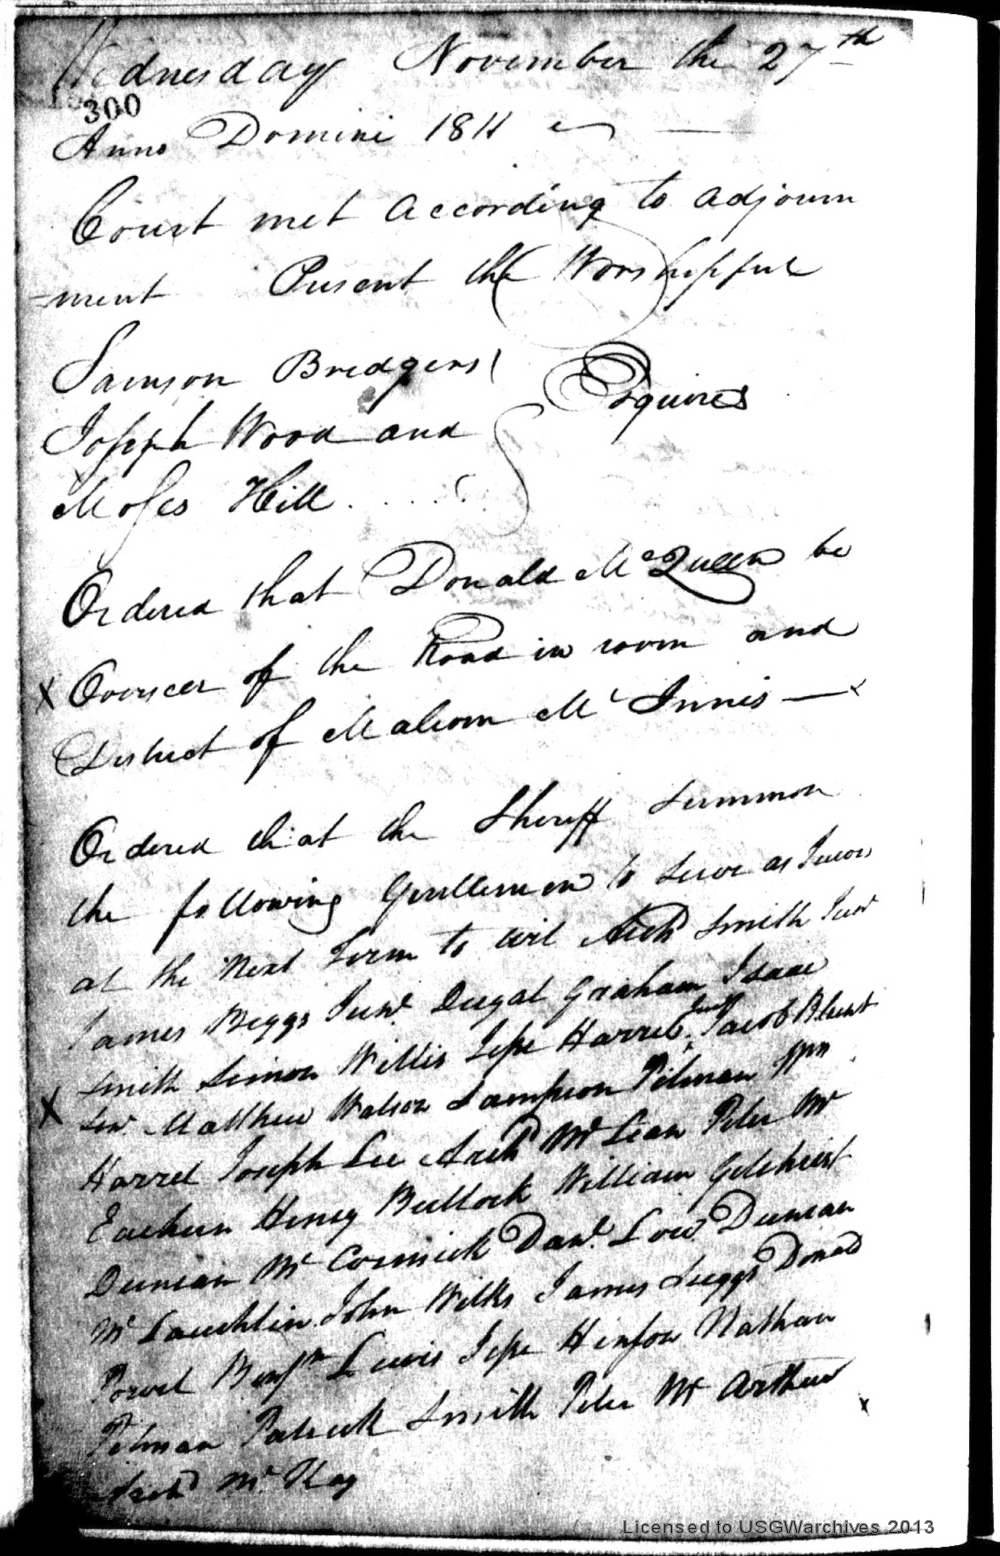 Wednesday November the 27th
300
Anno Domini 1811
Court met according to adjourn
=ment Present the Worshipful
Samson Bridgers
Esquires
Joseph Wood and
Moses Hill . . . .
Ordered that Donald Mc Queen be
X Overseer of the Road in room and
District of Malcom Mc Innis —
Ordered that the Sheriff summon
the following Gentlemen to serve as Jurors
at the Next Term to wit Archd Smith Junr
James Biggs Junr Dugal Graham Isaac
Smith Simon Willis Jesse Harrel Junr Jacob Blunt
X Senr Matthew Watson Sampson Pitman Wm
Harrel Joseph Lee Archd Mc Lean Peter Mc
Eachern Henry Bullock William Gilchrist
Duncan Mc Cormick Danl Low Duncan
Mc Lauchlin John Wilks James Suggs Donald
Powel Benjn Lewis Jesse Hinson Nathan
Pitman Patrick Smith Peter Mc Arthur
Archd Mc Kay
Licensed to USGWarchives 2013